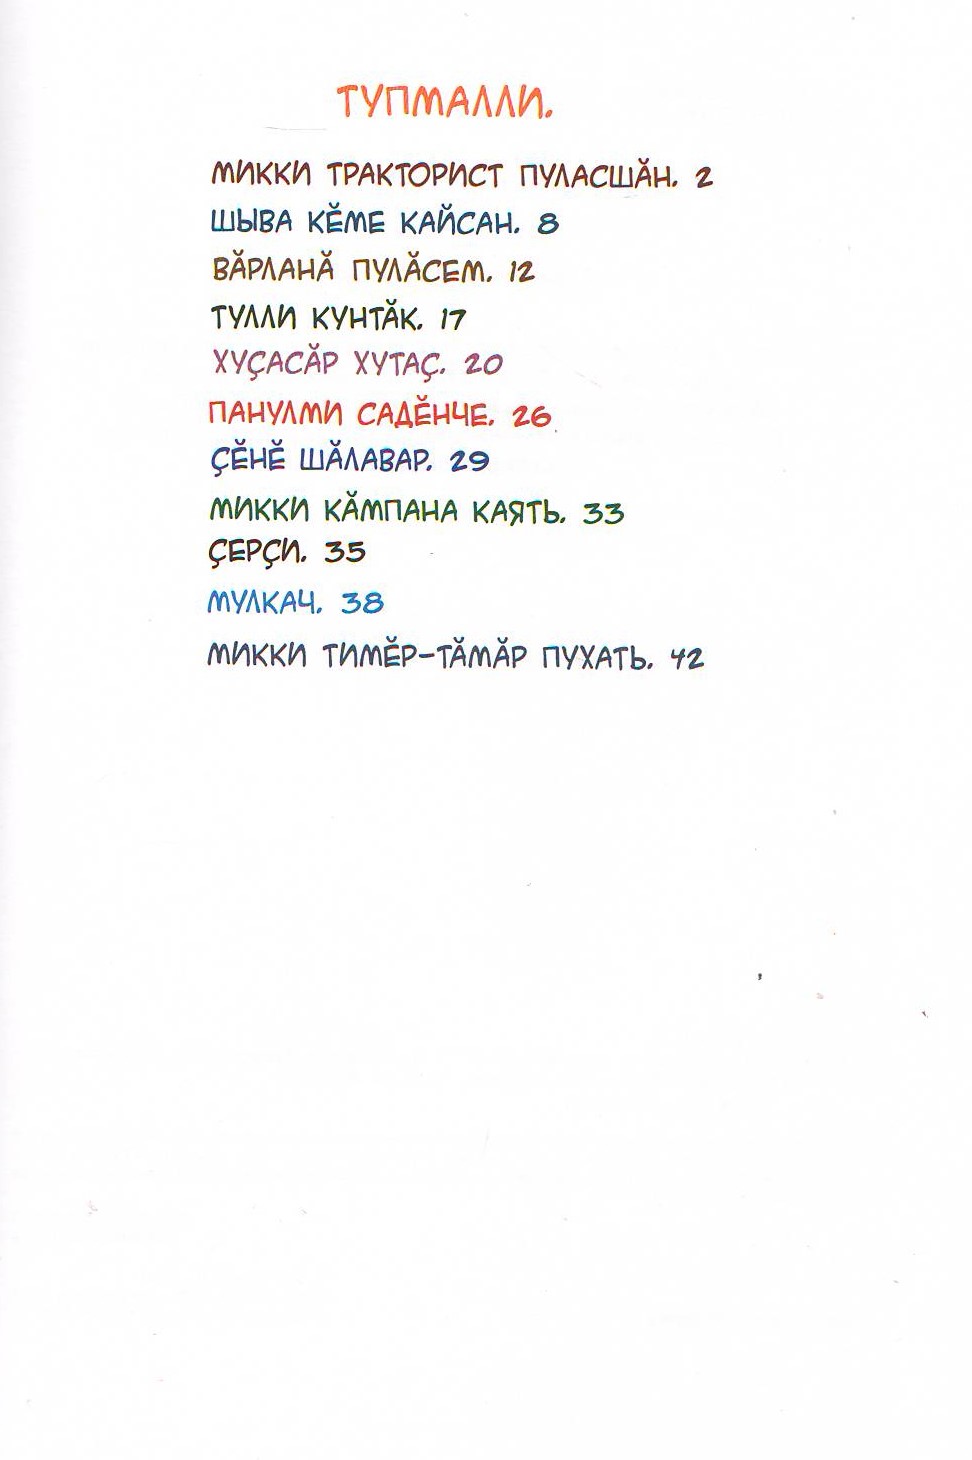 ТУПМАЛЛИ.
МИККИ ТРАКТОРИСТ ПУЛАСШӐН. 2
ШЫВА КӖМЕ КАЙСАН. 8
ВӐРЛАНӐ ПУЛӐСЕМ. 12
ТУЛЛИ КУНТӐК. 17
ХУҪАСӐР ХУТАҪ. 20
ПАНУЛМИ САДӖНЧЕ. 26
ҪӖНӖ ШӐЛАВАР. 29
МИККИ КӐМПАНА КАЯТЬ. 33
ҪЕРҪИ. 35
МУЛКАЧ. 38
МИККИ ТИМӖР-ТӐМӐР ПУХАТЬ. 42